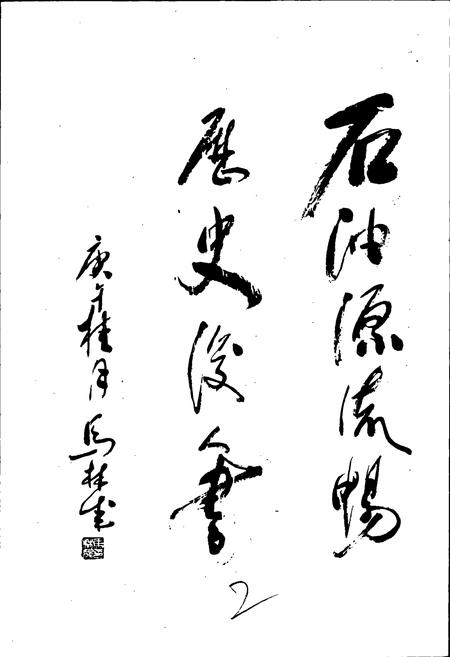 石油源流暢
歷史後人書
庚午桂月馬林
2